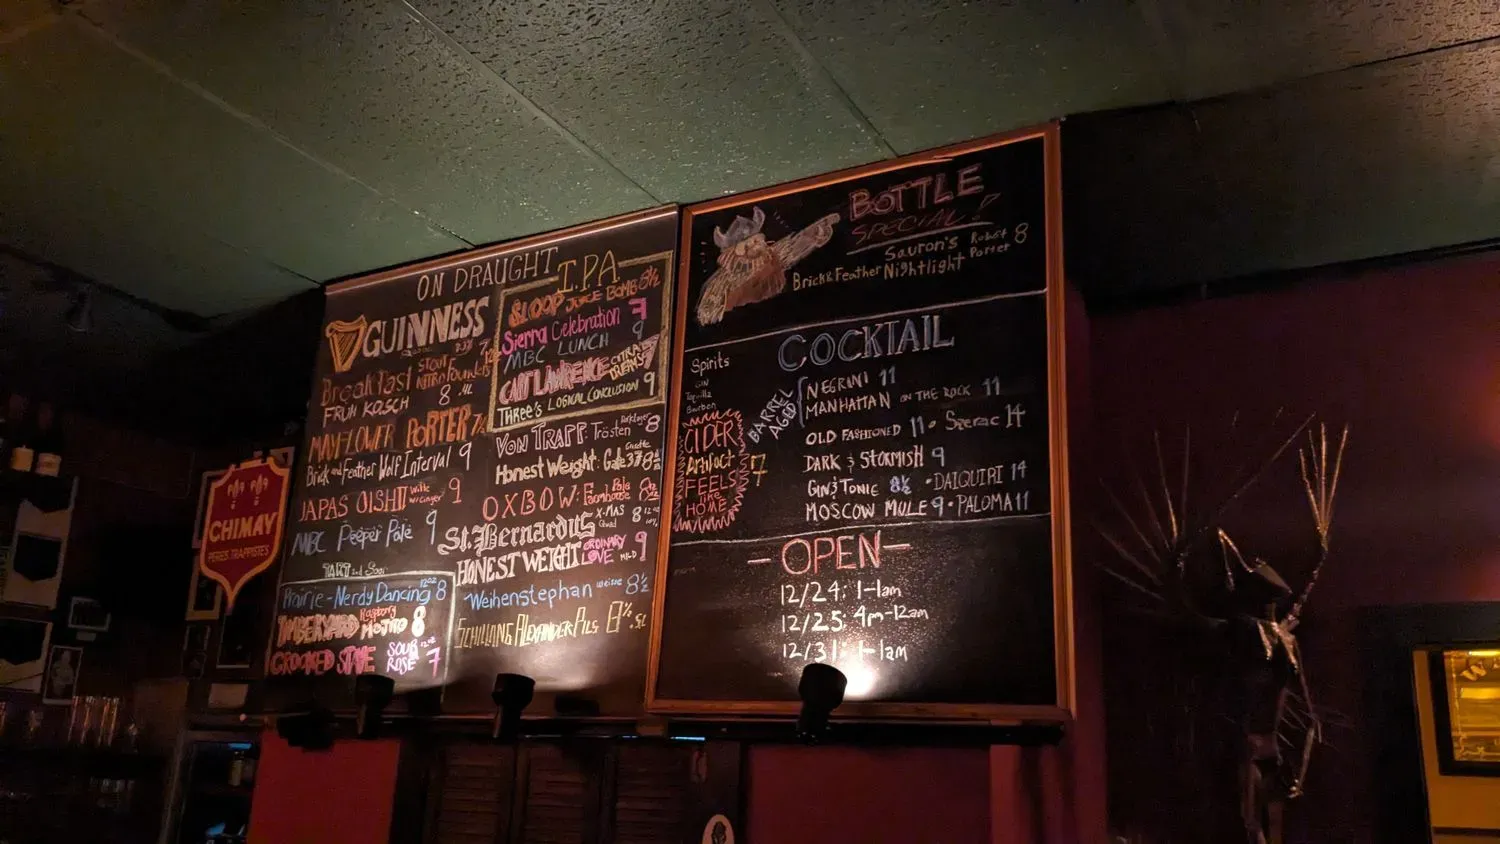 CHIMAY
PERES TRAPPISTES
ON DRAUGHT
GUINNESS
7
Breakfast STOUT NITRO Founders
FRUH KOLSCH 8 .4L
MAYFLOWER PORTER
Brick and Feather Wolf Interval 9
JAPAS OISHII 9
MBC Peeper Pale 9
TART and Sour
Prairie - Nerdy Dancing 12oz 8
TIMBERYARD Raspberry MOJITO 8
CROOKED STAVE SOUR ROSE 12oz 7
I.P.A
SLOOP JUICE BOMB 8½
Sierra Celebration 7
MBC LUNCH 9
CAN'T LAWRENCE
THREE'S LOGICAL CONCLUSION 9
VON TRAPP: Trösten 8
Honest Weight:
OXBOW: Farmhouse Pale
St. Bernardus X-MAS 8
HONEST WEIGHT ORDINARY LOVE MILD 9
Weihenstephan 8½
SCHILLING ALEXANDER PILS 8½ .5L
BOTTLE
SPECIAL!
Sauron's Robust 8
Brick & Feather Nightlight Porter
COCKTAIL
Spirits
GIN
Tequilla
Bourbon
CIDER
Artifact
FEELS
like
HOME
7
BARREL AGED
NEGRONI 11
MANHATTAN ON THE ROCK 11
OLD FASHIONED 11 · Sazerac 14
DARK & STORMISH 9
GIN & TONIC 8½ · DAIQUIRI 14
MOSCOW MULE 9 · PALOMA 11
- OPEN -
12/24: 1-1am
12/25: 4pm-12am
12/31: 1-1am